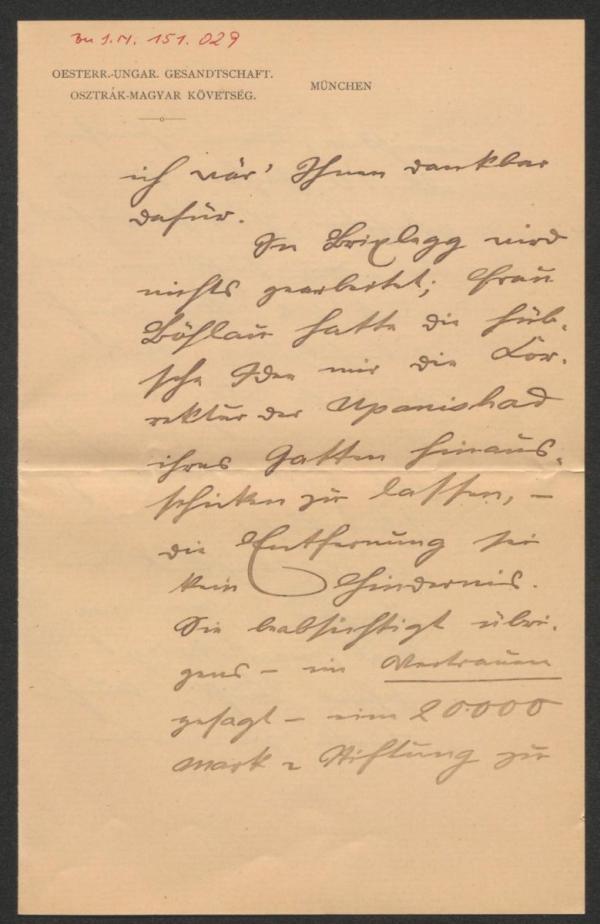 Zu I.N. 151.029
OESTERR.-UNGAR. GESANDTSCHAFT.
OSZTRÁK-MAGYAR KÖVETSÉG.
MÜNCHEN
ich wär' Ihnen dankbar
dafür.
In Brixlegg wird
nichts gearbeitet; Frau
Böhlau hatte die hüb-
sche Idee mir die Cor-
rektur der Upanishad
ihres Gatten hinaus-
schicken zu lassen, –
die Entfernung sei
kein Hindernis.
Sie beabsichtigt übri-
gens – im Vertrauen
gesagt – eine 20000
Mark = Stiftung zu